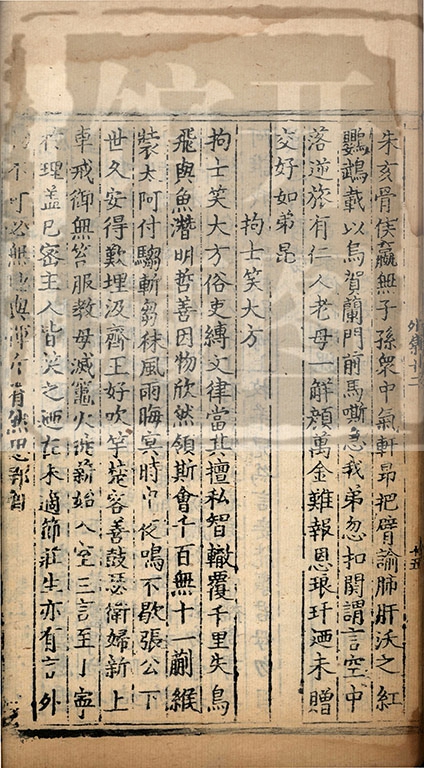 朱亥骨侯嬴無子孫衆中氣軒昂把臂諭肺肝沃之紅
鸚鵡載以烏賀蘭門前馬嘶急我弟忽扣関謂言空中
落逆旅有仁人老母一解顔萬金難報恩琅玕迺未贈
交好如弟昆
拘士笑大方
拘士笑大方俗吏縛文律當其擅私智轍覆千里失鳥
飛與魚潛明哲善因物欣然領斯會千百無十一蒯緱
裝太阿付騶斬芻秣風雨晦冥時中夜鳴不歇張公下
世久安得歎埋没齊王好吹竽楚客善鼓瑟衛婦新上
車戒御無笞服教母滅竈火徙薪始入室三言至丁寧
於理蓋已密主人皆笑之迺在未適節莊生亦有言外
不可必無與揮斤有然思郢
外集十二
廿五